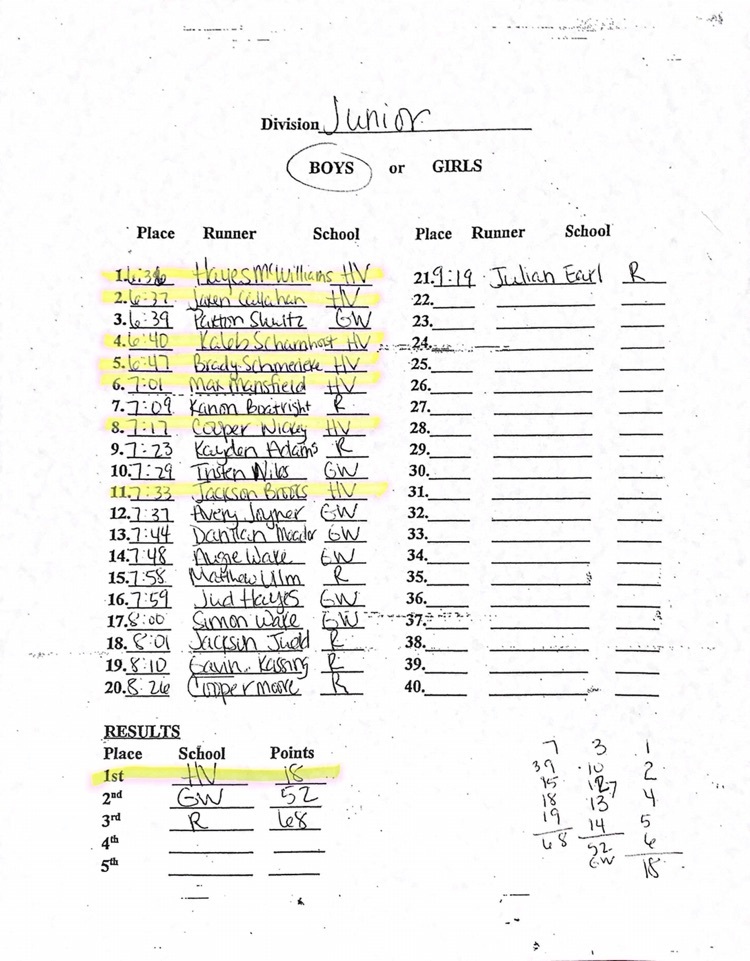 Division Junior
BOYS or GIRLS
Place Runner School
1. 6:36 Hayes McWilliams HV
2. 6:37 Jaren Callahan HV
3. 6:39 Paxton GW
4. 6:40 Kaleb Scharnhorst HV
5. 6:47 Brady HV
6. 7:01 Max Mansfield HV
7. 7:09 Kanon Boatright R
8. 7:17 Cooper Wickey HV
9. 7:23 Kayden Adams R
10. 7:29 Tristen Niles GW
11. 7:33 Jackson Brooks HV
12. 7:37 Avery Joyner GW
13. 7:44 GW
14. 7:48 Augie Wake GW
15. 7:58 Matthew Ulm R
16. 7:59 Jud Hayes GW
17. 8:00 Simon Wake GW
18. 8:01 Jacksin Judd R
19. 8:10 Gavin Kassing R
20. 8:26 Cooper moore R
Place Runner School
21. 9:19 Julian Earl R
22.
23.
24.
25.
26.
27.
28.
29.
30.
31.
32.
33.
34.
35.
36.
37.
38.
39.
40.
RESULTS
Place School Points
1st HV 18
2nd GW 52
3rd R 68
4th
5th
7 3 1
9 10 2
15 12 4
18 13 5
19 14 6
68 52 18
GW